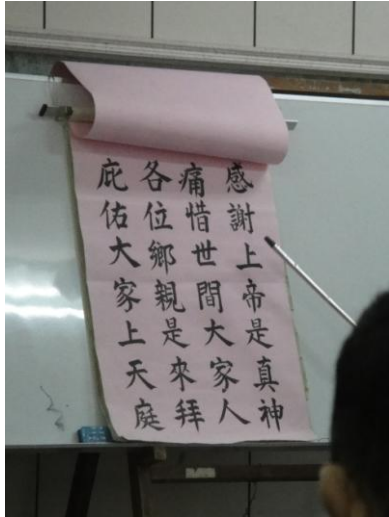 感謝上帝是真神
痛惜世間大家人
各位鄉親是來拜
庇佑大家上天庭